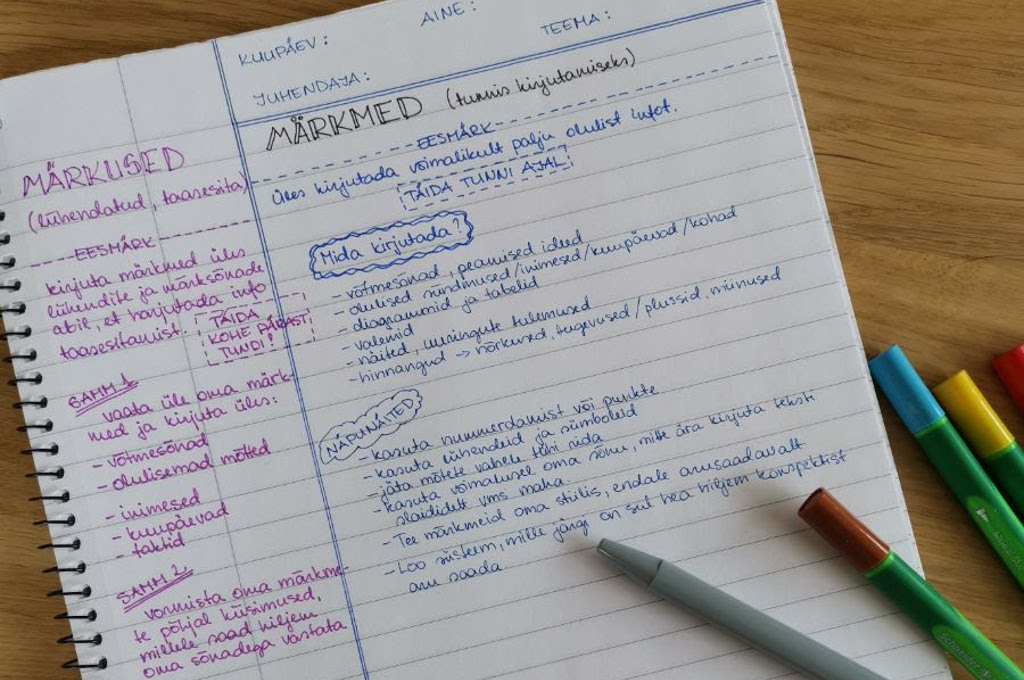 KUUPÄEV:
AINE:
TEEMA:
JUHENDAJA:
MÄRKMED (tunnis kirjutamiseks)
EESMÄRK
üles kirjutada võimalikult palju olulist infot.
TÄIDA TUNNI AJAL
Mida kirjutada?
- võtmesõnad, peamised ideed
- olulised sündmused/inimesed/kuupäevad/kohad
- diagrammid ja tabelid
- valemid
- näited, uuringute tulemused
- hinnangud → nõrkused, tugevused/plussid, miinused
NÄPUNÄITED
- kasuta nummerdamist või punkte
- kasuta lühendeid ja sümboleid
- jäta mõtete vahele tühi rida
- kasuta võimalusel oma sõnu, mitte ära kirjuta teksti
slaididelt vms maha.
- Tee märkmeid oma stiilis, endale arusaadavalt
- Loo süsteem, mille järgi on sul hea hiljem konspektist
aru saada
MÄRKUSED
(lühendatud, taasesita)
EESMÄRK
kirjuta märkmed üles
lühendite ja märksõnade
abil, et harjutada info
taasesitamist.
TÄIDA
KOHE PÄRAST
TUNDI!
SAMM 1
vaata üle oma märk-
med ja kirjuta üles:
- võtmesõnad
- olulisemad mõtted
- inimesed
- kuupäevad
- faktid
SAMM 2
vormista oma märkme-
te põhjal küsimused,
millele saad hiljem
oma sõnadega vastata
Schneider